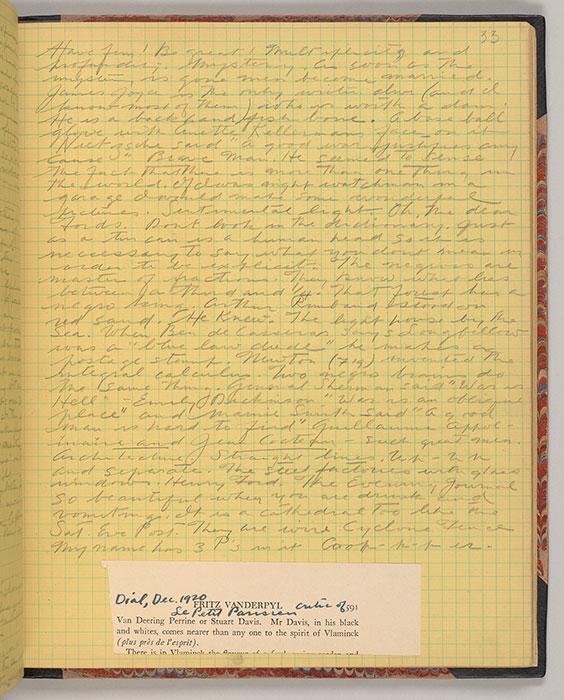 33
Have fun! Be great! Multiplicity and
profundity. Mystery. As soon as the
mystery is gone men become married.
James Joyce is the only writer alive (and I
know most of them) who is worth a damn.
He is a backhand fish bone. A base ball
glove with Anette Kellermans face on it
Nietzsche said "A good war justifies any
cause" Brave Man. He seemed to sense
the fact that there is more than one thing in
the world. If I was night watchman in a
garage I would make some
pictures. Sentimental light Oh, the dear
Fords. Dont look in the dictionary. Just
as a tin can is a human head so it is
neccessary to say what you dont mean in
order to be explicit. The negroes are
master of fractions. Their power lies
between a third and 1/4. That forest has a
negro King. Arthur Rimbaud
red sand. He Knew. The light house by the
Sea. When Ben de Casseras says Longfellow
was a "blue law dude" he makes a
postage stamp. Newton (7 19) invented the
integral calculus. Two negro brains do
the same thing. General Sherman said "War is
Hell" - Emily Dickinson "War is an oblique
place" and Mamie Smith said "A good
man is hard to find" Guillaume Appol-
inaire and Jean Cocteau - Such great men.
Architecture, Straight lines. Uh - uh
and separate. The Steel factories with glass
windows. Henry Ford. The Evening Journal
so beautiful when you are drunk and
vomiting. It is a cathedral too like the
Sat. Eve Post. They are wire Cyclone Fence
My name has 3 P's in it Coop-p-p er.
Dial, Dec. 1920
FRITZ VANDERPYL 591
Le Petit Parisien critic of
Van Deering Perrine or Stuart Davis. Mr Davis, in his black
and whites, comes nearer than any one to the spirit of Vlaminck
(plus près de l'esprit).
There is in Vlaminck the flavour of